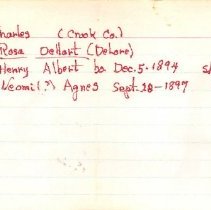 harles (Crook Co.)
Rosa DeHart (DeHore)
Henry Albert bo Dec. 5. 1894 s/
Neomi(?) Agnes Sept-28-1897